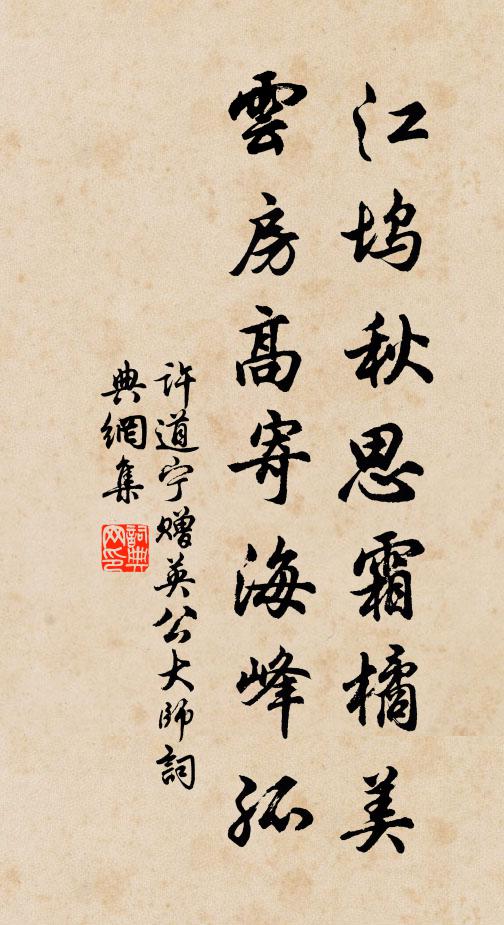 江坞秋思霜橘美
雲房高寄海峰孤
许道宁赠英公大师詞
典網集
詞典
网印